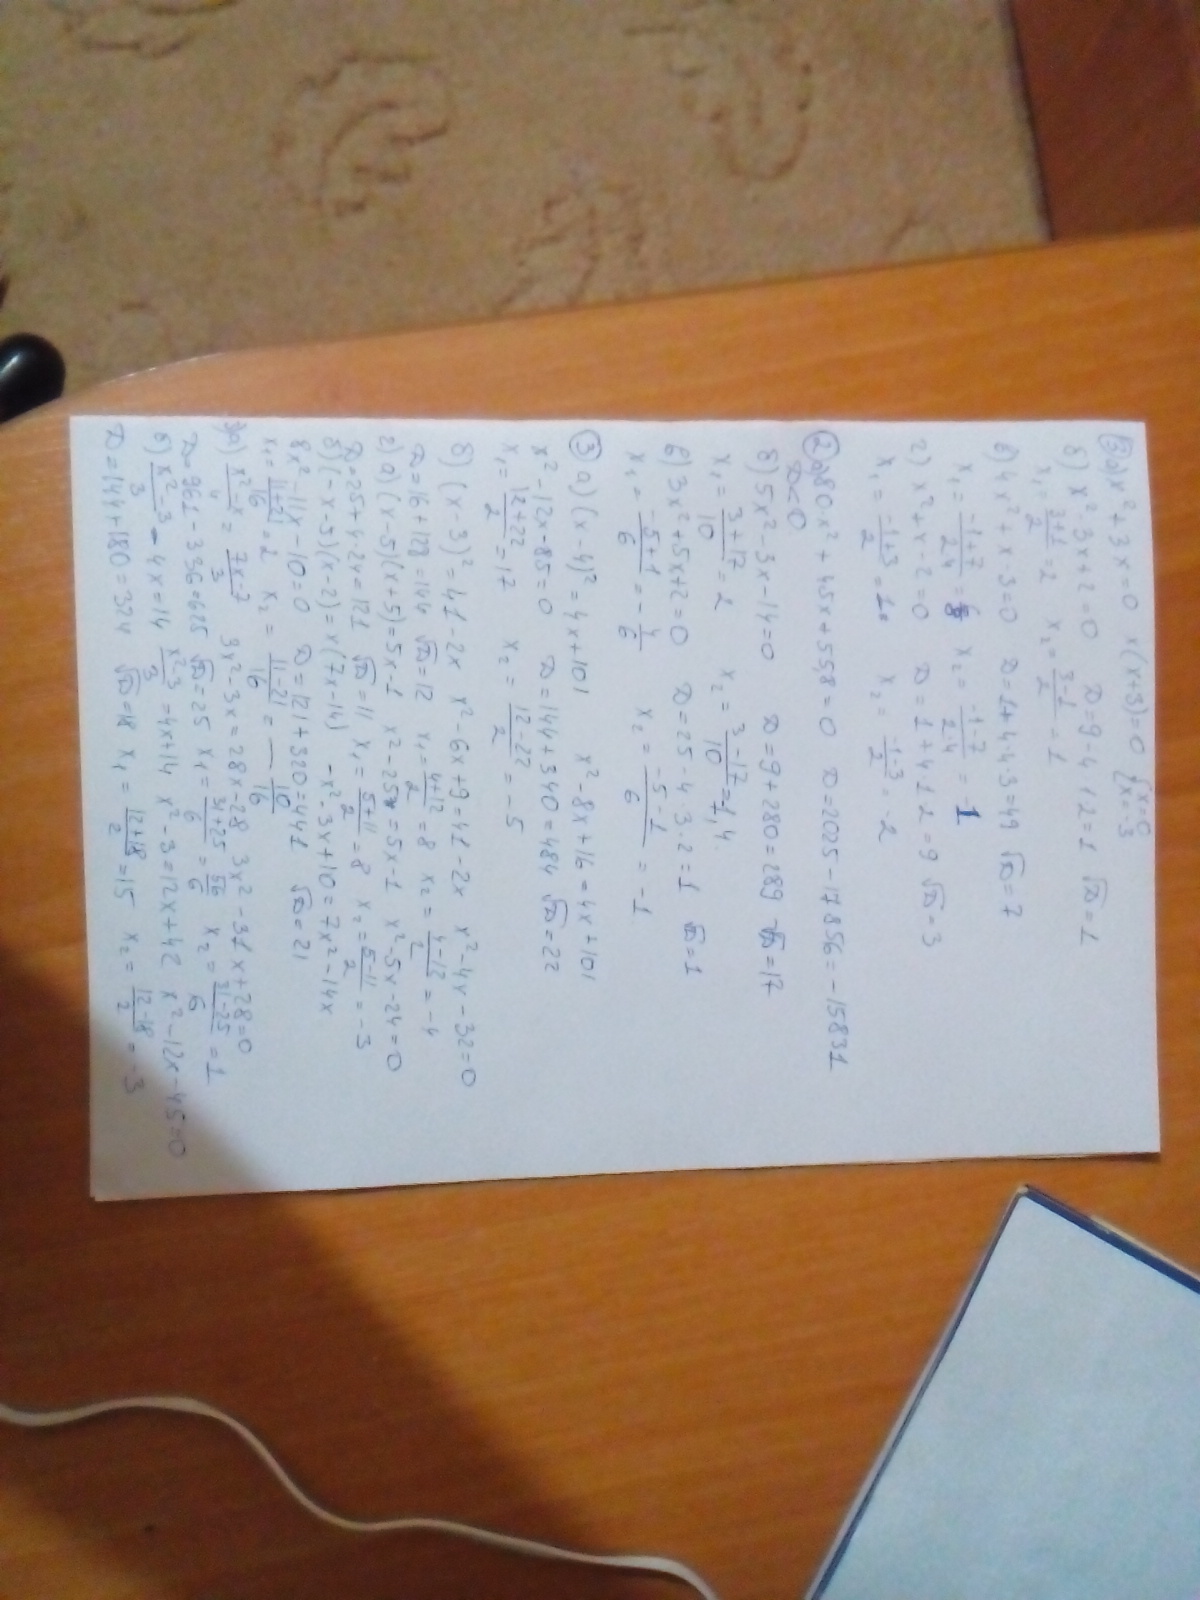 ③ а) x² + 3x = 0 x(x+3)=0 {x=0 x=-3
б) x² 3x+2=0 D=9-4·1·2=1 √D=1
x₁=(3+1)/2=2 x₂=(3-1)/2=1
в) 4x²+x-3=0 D=1+4·4·3=49 √D=7
x₁=(-1+7)/(2·4)= x₂=(-1-7)/(2·4)=-1
г) x²+x-2=0 D=1+4·1·2=9 √D=3
x₁=(-1+3)/2= x₂=(-1-3)/2=-2
② а) 80x²+45x+55,8=0 D=2025-17856=-15831
D<0
б) 5x²-3x-14=0 D=9+280=289 √D=17
x₁=(3+17)/10=2 x₂=(3-17)/10=-1,4
в) 3x²+5x+2=0 D=25-4·3·2=1 √D=1
x₁=(-5+1)/6=-4/6 x₂=(-5-1)/6=-1
③ а) (x-4)²=4x+101 x²-8x+16=4x+101
x²-12x-85=0 D=144+340=484 √D=22
x₁=(12+22)/2=17 x₂=(12-22)/2=-5
б) (x-3)²=41-2x x²-6x+9=41-2x x²-4x-32=0
D=16+128=144 √D=12 x₁=(4+12)/2=8 x₂=(4-12)/2=-4
2) а) (x-5)(x+5)=5x-1 x²-25=5x-1 x²-5x-24=0
D=25+4·24=121 √D=11 x₁=(5+11)/2=8 x₂=(5-11)/2=-3
б) (-x-5)(x-2)=x(7x-14) -x²-3x+10=7x²-14x
8x²-11x-10=0 D=121+320=441 √D=21
x₁=(11+21)/16=2 x₂=(11-21)/16=-10/16
3а) (x²-x)/4=(7x-7)/3 3x²-3x=28x-28 3x²-31x+28=0
D=961-336=625 √D=25 x₁=(31+25)/6=56/6 x₂=(31-25)/6=1
б) (x²-3)/3-4x=14 (x²-3)/3=4x+14 x²-3=12x+42 x²-12x-45=0
D=144+180=324 √D=18 x₁=(12+18)/2=15 x₂=(12-18)/2=-3